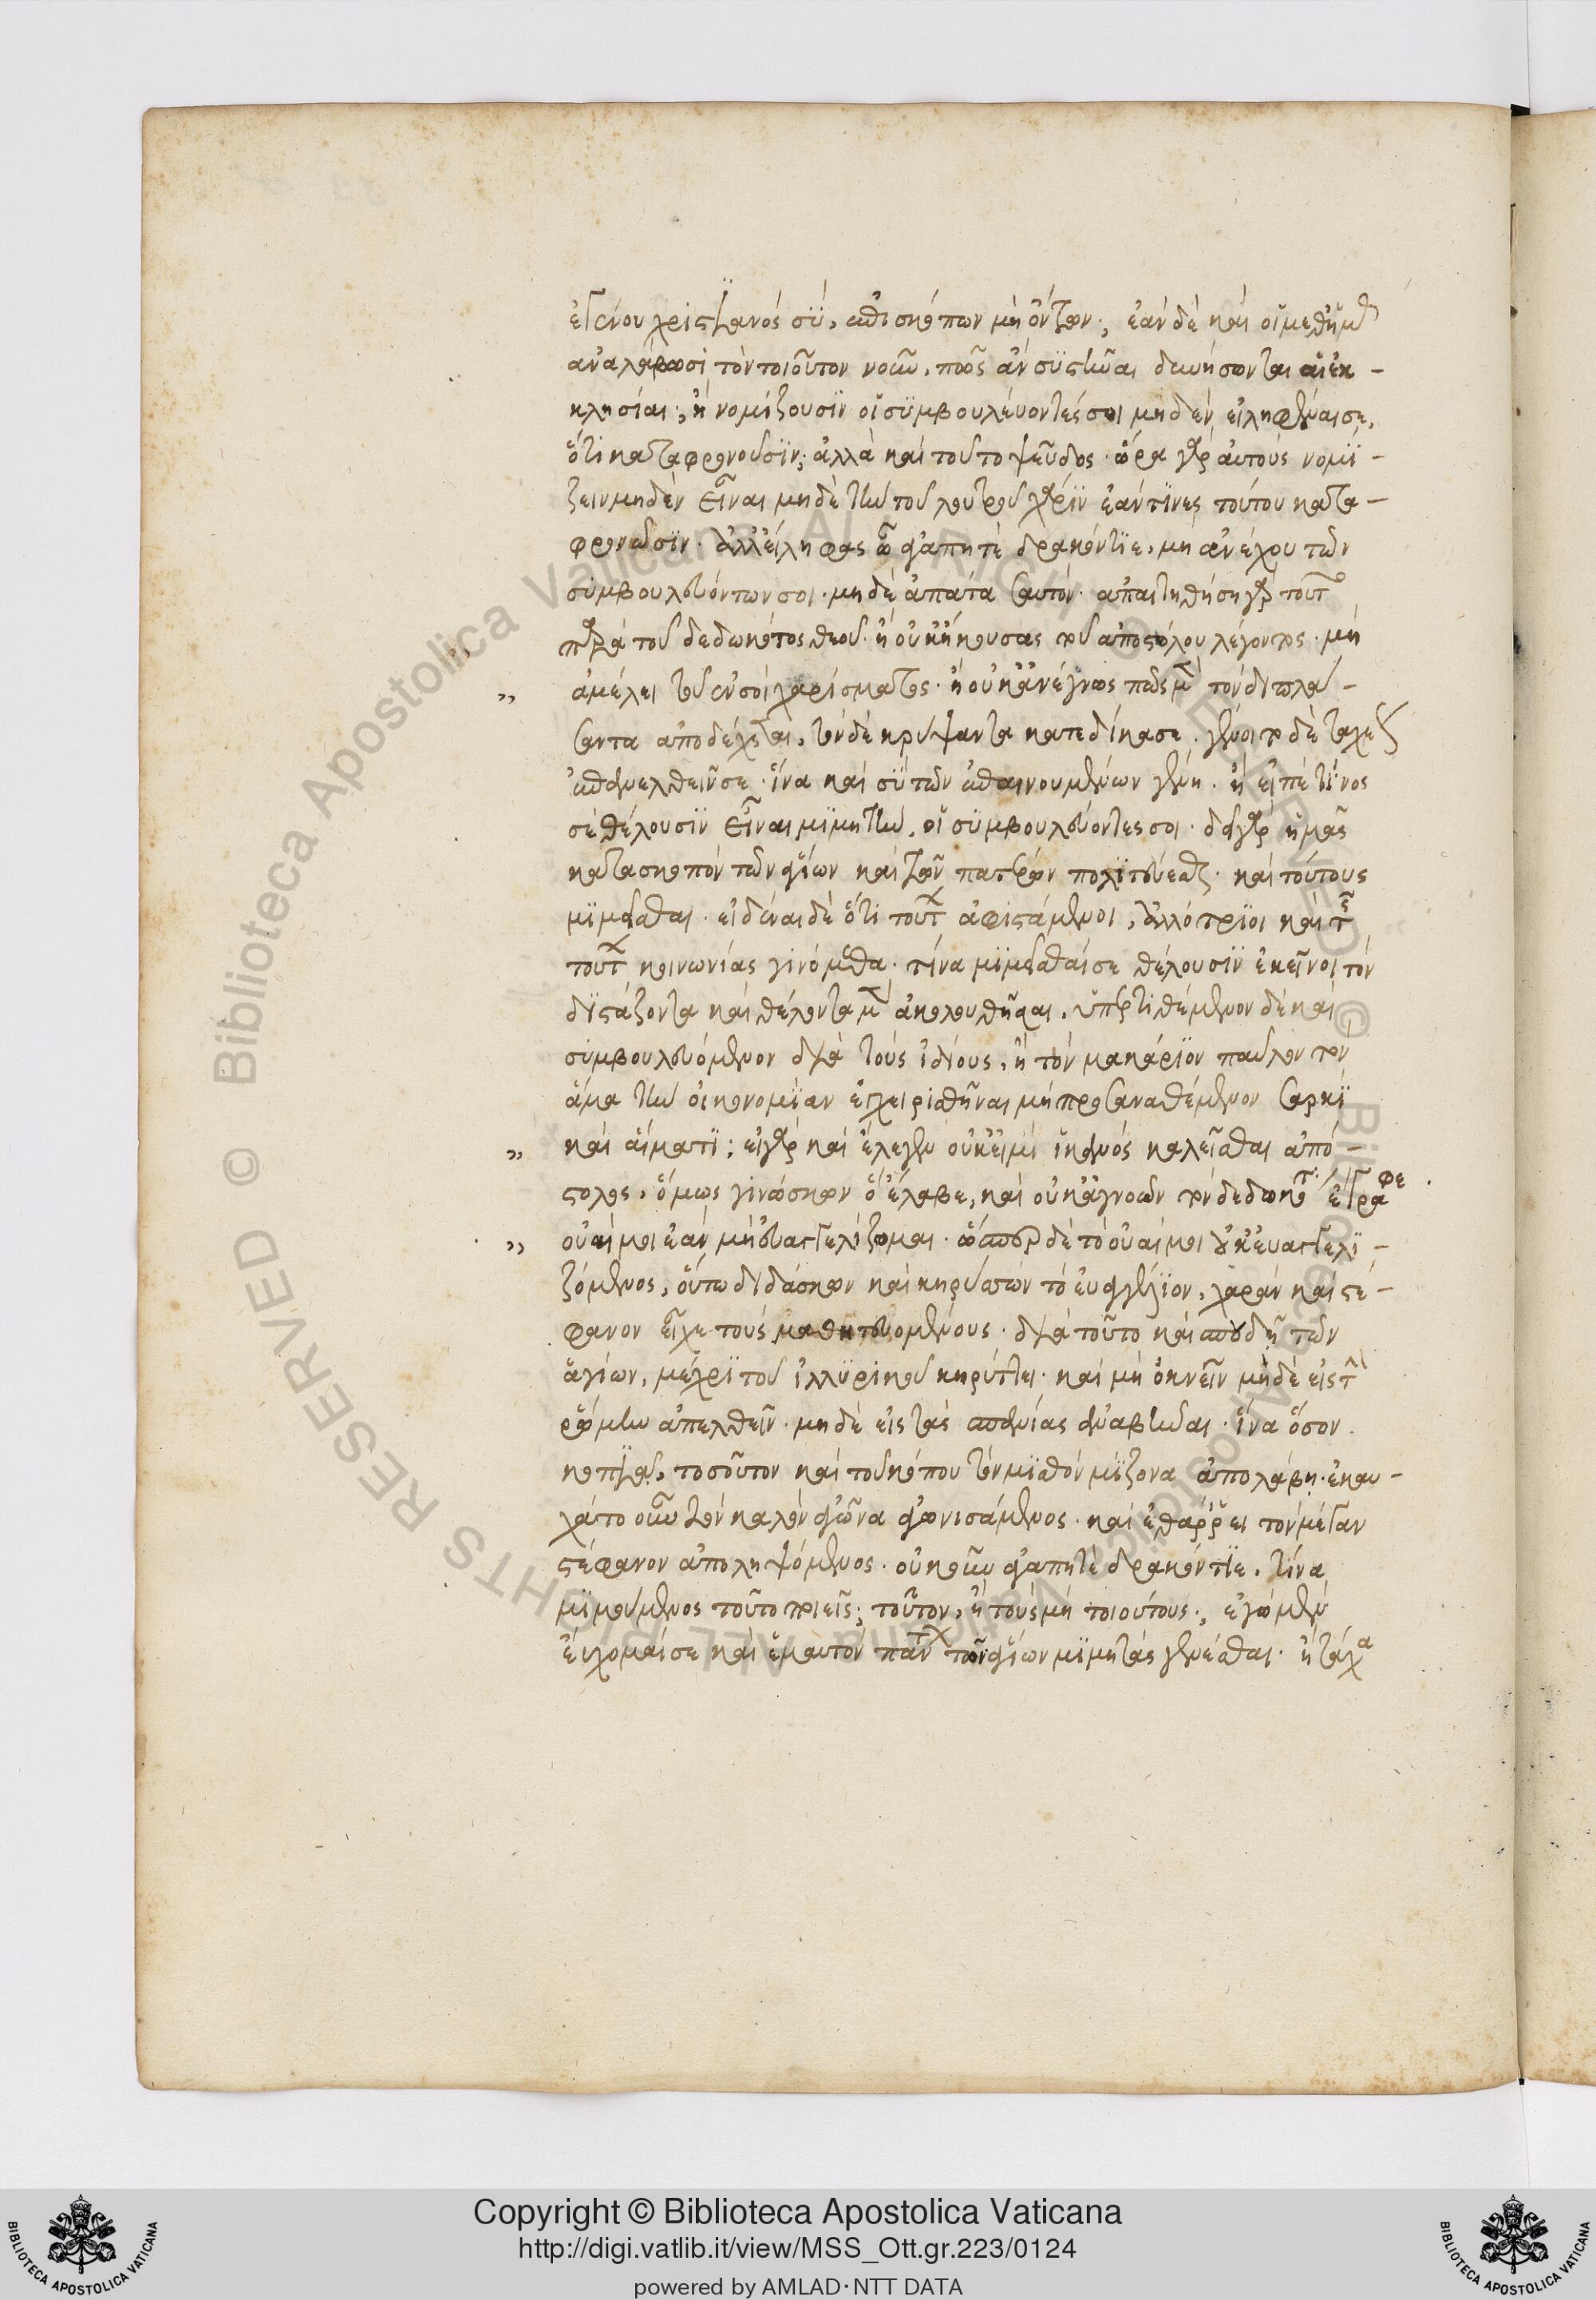 ἐγένου χριστιανὸς σὺ, ἐπισκόπων μὴ ὄντων; ἐὰν δὲ καὶ οἱ μεθ' ἡμᾶς
ἀναλάβωσι τὸν τοιοῦτον νοῦν, πῶς ἂν συστῆναι δυνήσονται αἱ ἐκ-
κλησίαι; ἢ νομίζουσιν οἱ συμβουλεύοντές σοι μηδὲν εἰληφέναι σε,
ὅτι καταφρονοῦσιν; ἀλλὰ καὶ τοῦτο ψεῦδος. ὥρα γὰρ αὐτοὺς νομί-
ζειν μηδὲν εἶναι μηδὲ τὴν τοῦ λουτροῦ χάριν ἐάν τινες τούτου κατα-
φρονῶσιν. ἀλλ' εἴληφας ὦ ἀγαπητὲ δρακόντιε, μὴ ἀνέχου τῶν
συμβουλευόντων σοι. μηδὲ ἀπάτα σαυτόν. ἀπαιτηθήσῃ γὰρ τοῦτο
παρὰ τοῦ δεδωκότος θεοῦ. ἢ οὐκ ἤκουσας τοῦ ἀποστόλου λέγοντος. μὴ
ἀμέλει τοῦ ἐν σοὶ χαρίσματος. ἢ οὐκ ἀνέγνως πῶς μετὰ τὸν διπλα-
σαντα ἀποδέχεται, τὸν δὲ κρύψαντα κατεδίκασε. γένοιτο δὲ ταχέως
ἐπανελθεῖν σε. ἵνα καὶ σὺ τῶν ἐπαινουμένων γένῃ. ἢ εἰπὲ τίνος
σὲ θέλουσιν εἶναι μιμητὴν, οἱ συμβουλεύοντές σοι. δεῖ γὰρ ἡμᾶς
κατὰ σκοπὸν τῶν ἁγίων καὶ τῶν πατέρων πολιτεύεσθαι. καὶ τούτους
μιμεῖσθαι. εἰδέναι δὲ ὅτι τούτων ἀφιστάμενοι, ἀλλότριοι καὶ τῆς
τούτων κοινωνίας γινόμεθα. τίνα μιμεῖσθαί σε θέλουσιν ἐκεῖνοι τὸν
διστάζοντα καὶ θέλοντα μὲν ἀκολουθῆσαι, ὑπερτιθέμενον δὲ καὶ
συμβουλευόμενον διὰ τοὺς ἰδίους, ἢ τὸν μακάριον παῦλον τὸν
ἅμα τὴν οἰκονομίαν ἐγχειρισθῆναι μὴ προσαναθέμενον σαρκὶ
καὶ αἵματι; εἰ γὰρ καὶ ἔλεγεν οὐκ εἰμὶ ἱκανὸς καλεῖσθαι ἀπό-
στολος, ὅμως γινώσκων ὃ ἔλαβε, καὶ οὐκ ἀγνοῶν τὸν δεδωκότα, ἔγραφε
οὐαί μοι ἐὰν μὴ εὐαγγελίζωμαι. ὥσπερ δὲ τὸ οὐαί μοι οὐκ εὐαγγελι-
ζόμενος, οὕτω διδάσκων καὶ κηρύσσων τὸ εὐαγγέλιον, χαρὰν καὶ στέ-
φανον εἶχε τοὺς μαθητευομένους. διὰ τοῦτο καὶ σπουδὴ τῶν
ἁγίων, μέχρι τοῦ ἰλλυρικοῦ κηρύττει. καὶ μὴ ὀκνεῖν μηδὲ εἰς τὴν
ῥώμην ἀπελθεῖν. μηδὲ εἰς τὰς σπανίας ἀναβῆναι. ἵνα ὅσον
κοπιᾷ, τοσοῦτον καὶ τοῦ κόπου τὸν μισθὸν μίζονα ἀπολάβῃ. ἐκαυ-
χᾶτο οὖν τὸν καλὸν ἀγῶνα ἀγωνισάμενος. καὶ ἐθάρρει τὸν μέγαν
στέφανον ἀποληψόμενος. οὐκοῦν ἀγαπητὲ δρακόντιε, τίνα
μιμούμενος τοῦτο ποιεῖς; τοῦτον, ἢ τοὺς μὴ τοιούτους; ἐγὼ μὲν
εὔχομαί σε καὶ ἐμαυτὸν πάντων τῶν ἁγίων μιμητὰς γενέσθαι. ἢ τάχα
Copyright © Biblioteca Apostolica Vaticana
http://digi.vatlib.it/view/MSS_Ott.gr.223/0124
powered by AMLAD·NTT DATA